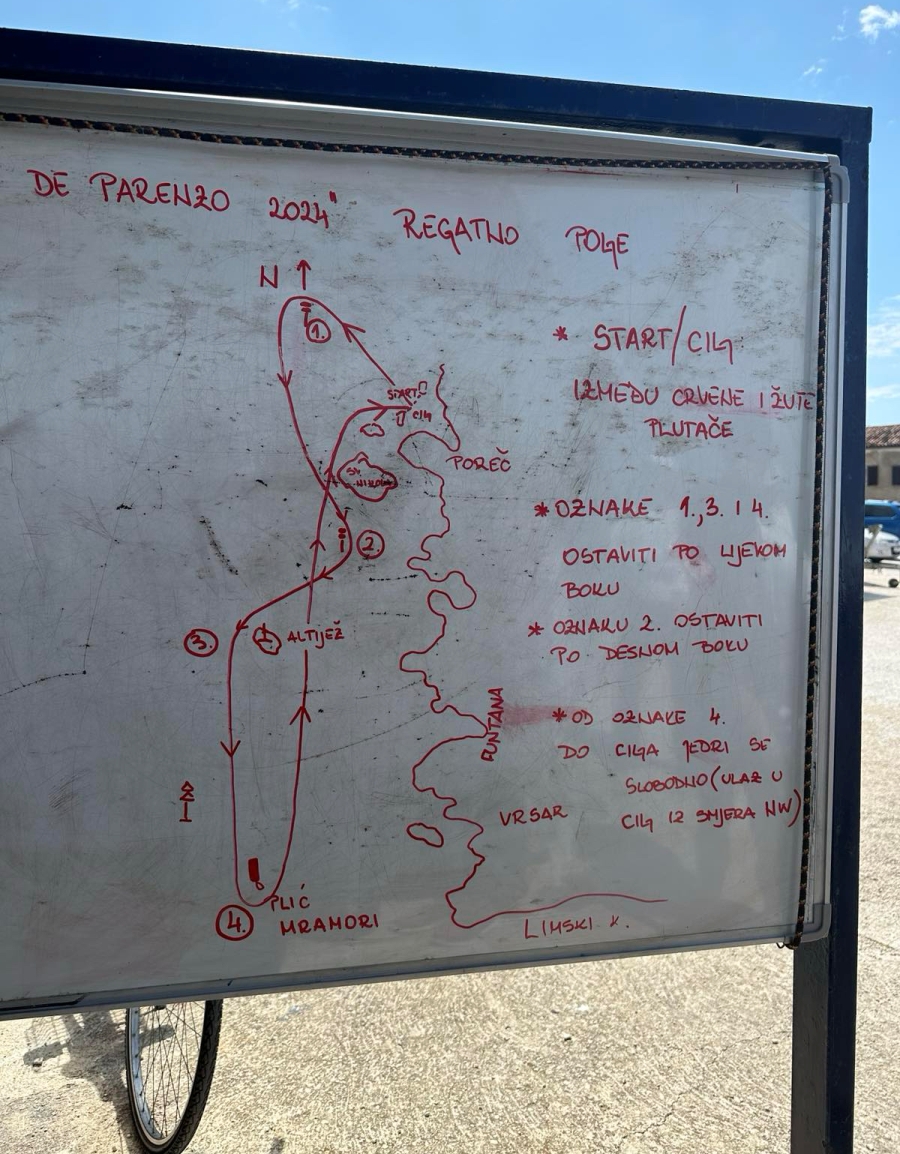 DE PARENZO 2024" REGATNO POLJE
N
1.
START
CILJ
SV. NIKOLA
POREČ
2.
3.
ALTIJEŽ
FUNTANA
VRSAR
4.
PLIĆ
MRAMORI
LIMSKI K.
* START/CILJ
IZMEĐU CRVENE I ŽUTE
PLUTAČE
* OZNAKE 1.,3. I 4.
OSTAVITI PO LIJEVOM
BOKU
* OZNAKU 2. OSTAVITI
PO DESNOM BOKU
* OD OZNAKE 4.
DO CILJA JEDRI SE
SLOBODNO (ULAZ U
CILJ IZ SMJERA NW)